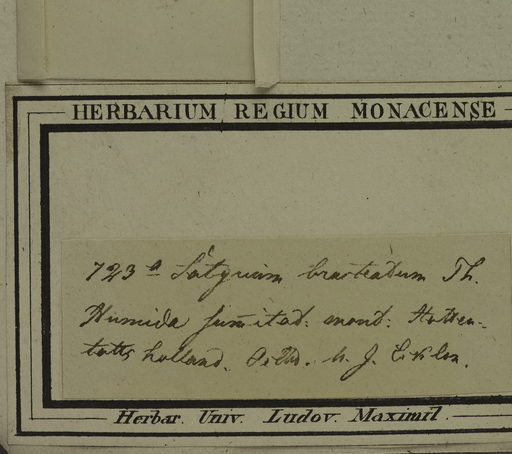 HERBARIUM REGIUM MONACENSE
723 a Satyrium bracteatum Th.
Humida sumitat. mont. Hotten-
totts holland. Octb. Ecklon.
Herbar. Univ. Ludov. Maximil.